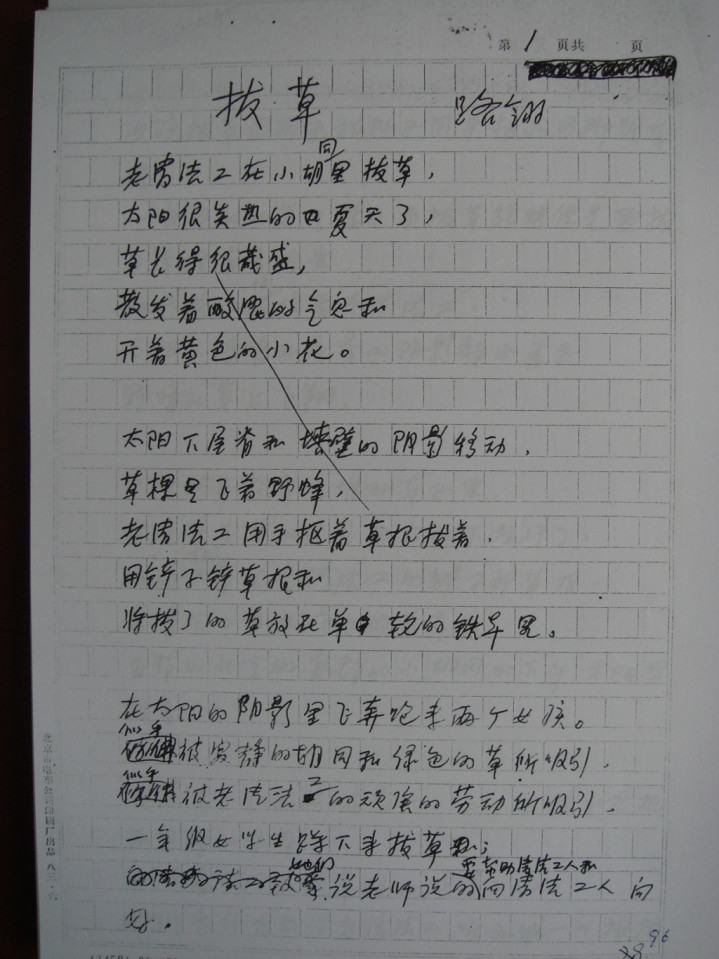 第 1 页共 页
拔草 路翎
老清洁工在小胡同里拔草，
太阳很炎热的 夏天了，
草长得很茂盛，
散发着酸涩的气息和
开着黄色的小花。
太阳下屋脊和墙壁的阴影移动，
草棵里飞着野蜂，
老清洁工用手抠着草根拔着，
用铲子铲草根和
将拔了的草放在单 轮的铁车里。
在太阳的阴影里飞奔跑来两个女孩。
似乎被安静的胡同和绿色的草所吸引，
似乎被老清洁工的顽强的劳动所吸引，
一年级女学生蹲下来拔草；
她们说老师说的要帮助清洁工人和向清洁工人问
好。
96
北京市电车公司印刷厂出品 八三·六